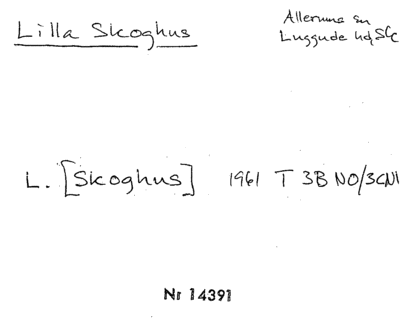 Lilla Skoghus
Allerums sn
Luggude hd, Sk
L. [Skoghus] 1961 T 3B NO/3C NV
Nr 14391